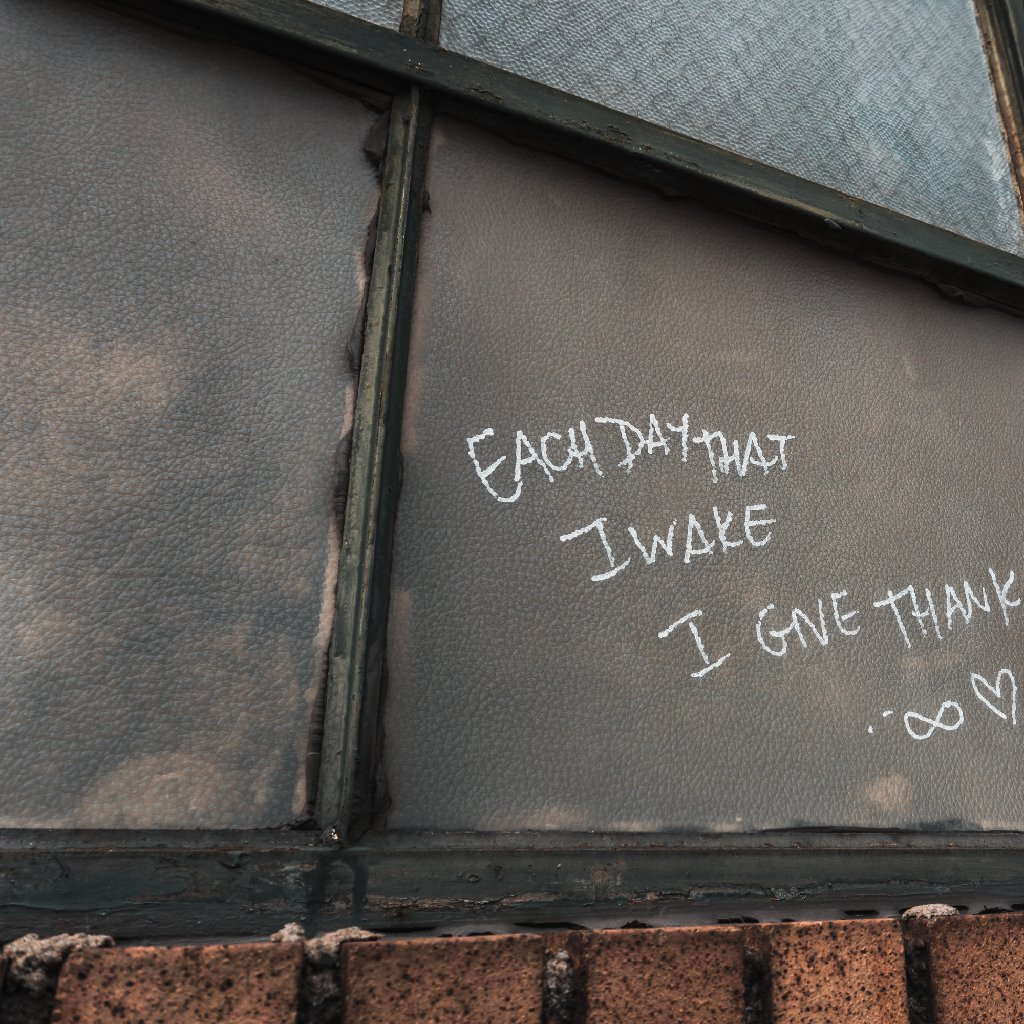 EACH DAY THAT
I WAKE
I GIVE THANK